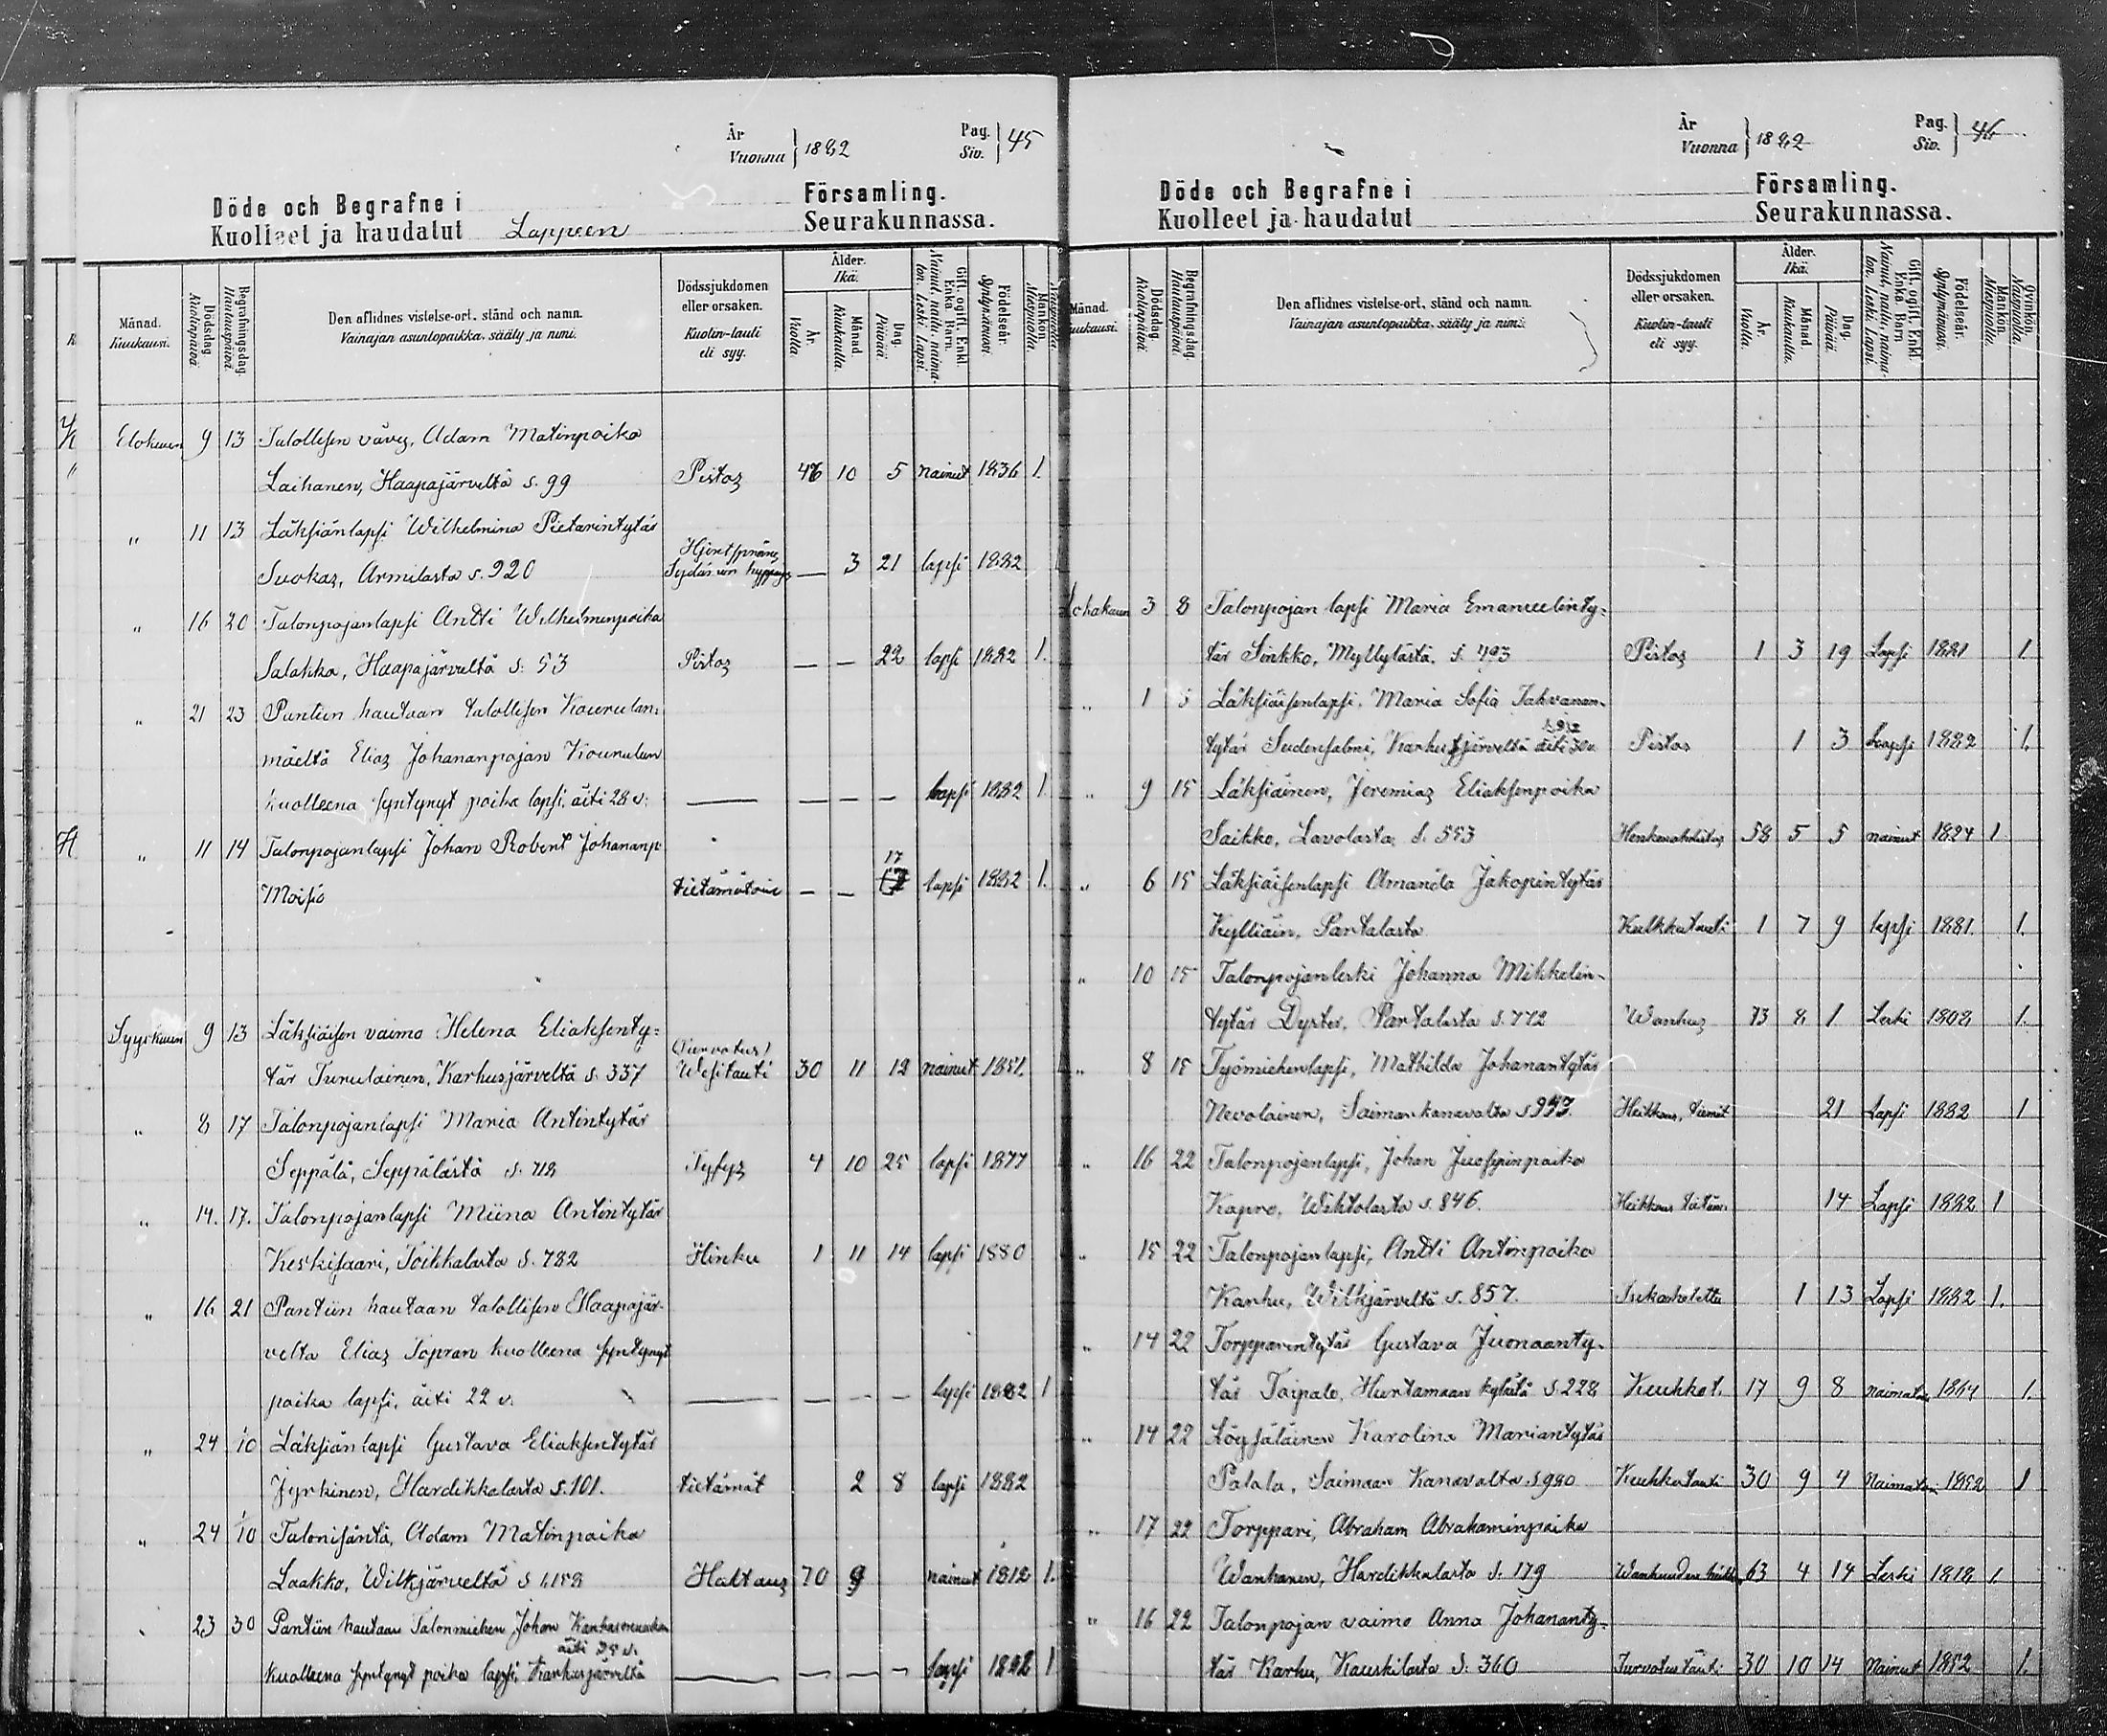 År
Vuonna } 1882
Pag.
Siv. } 45
Döde och Begrafne i Församling.
Kuolleet ja haudatut Lappeen Seurakunnassa.
Månad. Kuukausi.
Dödsdag. Kuolinpäivä.
Begrafningsdag. Hautauspäivä.
Den aflidnes vistelse-ort, stånd och namn.
Vainajan asuntopaikka, sääty ja nimi.
Dödssjukdomen eller orsaken.
Kuolin-tauti eli syy.
Ålder. Ikä.
År. Vuolla.
Månad. Kuukaulla.
Dag. Päivää.
Gift, ogift, Enkl. Enka, Barn.
Nainut, naitu, naimaton, Leski, Lapsi.
Födelseår. Syntymävuosi.
Mankön. Miespuolia.
Elokuun 9 13 Talollisen vävy, Adam Matinpoika
Laihanen, Haapajärveltä s. 99 Pistos 46 10 5 nainut 1836 1.
„ 11 13 Läksiänlapsi Wilhelmina Pietarintytär
Suokas, Armilasta s. 920 Sydämen — 3 21 lapsi 1882
„ 16 20 Talonpojanlapsi Antti Wilhelminpoika
Salakka, Haapajärveltä s. 53 Pistos — — 22 lapsi 1882 1.
„ 21 23 Pantiin hautaan talollisen Kourulan-
mäeltä Elias Johananpojan Kourulan
kuolleena syntynyt poika lapsi, äiti 28 v. — — — — lapsi 1882 1
„ 11 14 Talonpojanlapsi Johan Robert Johananp
17
Moisio tietämätöin — — lapsi 1882 1.
Syyskuun 9 13 Läksiäisen vaimo Helena Eliaksenty-
tär Turulainen, Karhusjärveltä s. 337 Wesitauti 30 11 12 nainut 1851.
„ 8 17 Talonpojanlapsi Maria Antintytär
Seppälä, Seppälästä s. 718 Tyfys 4 10 25 lapsi 1877
„ 14. 17. Talonpojanlapsi Miina Antintytär
Keskisaari, Toikkalasta s. 782 Hinku 1 11 14 lapsi 1880
„ 16 21 Pantiin hautaan talollisen Haapajär-
veltä Elias Topran kuolleena syntynyt
poika lapsi, äiti 22 v. — — — — lapsi 1882 1
„ 24 1/10 Läksiänlapsi Gustava Eliaksentytär
Jyrkinen, Hardikkalasta s. 101. tietämät 2 8 lapsi 1882
„ 24 1/10 Talonisäntä, Adam Matinpoika
Laakko, Wilkjärveltä s 1,158 Haltaus 70 9 nainut 1812 1.
23 30 Pantiin hautaan Talonmiehen Johan
äiti 25 v.
kuolleena syntynyt poika lapsi, Karhusjärveltä — — — — lapsi 1882 1
År
Vuonna } 1882
Pag.
Siv. } 46
Döde och Begrafne i Församling.
Kuolleet ja haudatut Seurakunnassa.
Månad. Kuukausi.
Dödsdag. Kuolinpäivä.
Begrafningsdag. Hautauspäivä.
Den aflidnes vistelse-ort, stånd och namn.
Vainajan asuntopaikka, sääty ja nimi.
Dödssjukdomen eller orsaken.
Kuolin-tauti eli syy.
Ålder. Ikä.
År. Vuolla.
Månad. Kuukaulla.
Dag. Päivää.
Gift, ogift, Enkl. Enka, Barn.
Nainut, naitu, naimaton, Leski, Lapsi.
Födelseår. Syntymävuosi.
Mankön. Miespuolia.
Qvinkön. Vaimopuolia.
Lokakuun 3 8 Talonpojan lapsi Maria Emanuelinty-
tär Sinkko, Myllylästä. s. 493 Pistos 1 3 19 Lapsi 1881 1
„ 1 5 Läksiäisenlapsi, Maria Sofia Tahvanan-
tytär Sudensalmi, Karhusjärveltä äiti 30 v. Pistos 1 3 Lapsi 1882 1.
„ 9 15 Läksiäinen, Jeremias Eliaksenpoika
Saikko, Lavolasta, s. 553 Henkenahdistus 58 5 5 nainut 1824 1
„ 6 15 Läksiäisenlapsi Amanda Jakopintytär
Kylliäin, Partalasta Kulkkutauti 1 7 9 lapsi 1881. 1.
„ 10 15 Talonpojanleski Johanna Mikkelin-
tytär Dyster, Partalasta s. 772 Wanhus 73 8 1 Leski 1808 1.
„ 8 15 Työmiehenlapsi, Mathilda Johanantytär
Nevolainen, Saiman kanavalta s 957. Heikkous, tiemät 21 Lapsi 1882 1
„ 16 22 Talonpojanlapsi, Johan Juosepinpoika
Kapro, Wihtolasta s. 846. Heikkous 14 Lapsi 1882 1
„ 15 22 Talonpojanlapsi, Antti Antinpoika
Karhu, Wilkjärveltä s. 857. Tukahutettu 1 13 Lapsi 1882 1.
„ 14 22 Torpparintytär Gustava Juonaanty-
tär Taipale, Hurtamaan kylästä s. 228 Keuhkot. 17 9 8 naimaton 1864 1.
„ 14 22 Löysäläinen Karolina Mariantytär
Patala, Saimaan Kanavalta s 980 Keuhkotauti 30 9 4 Naimaton 1852 1
„ 17 22 Torppari, Abraham Abrahaminpoika
Wanhanen, Hardikkalasta s. 179 Wanhuuden 63 4 14 Leski 1818 1
„ 16 22 Talonpojan vaimo Anna Johananty-
tär Karhu, Kauskilasta s. 360 Turvotus tauti 30 10 14 Nainut 1852 1.